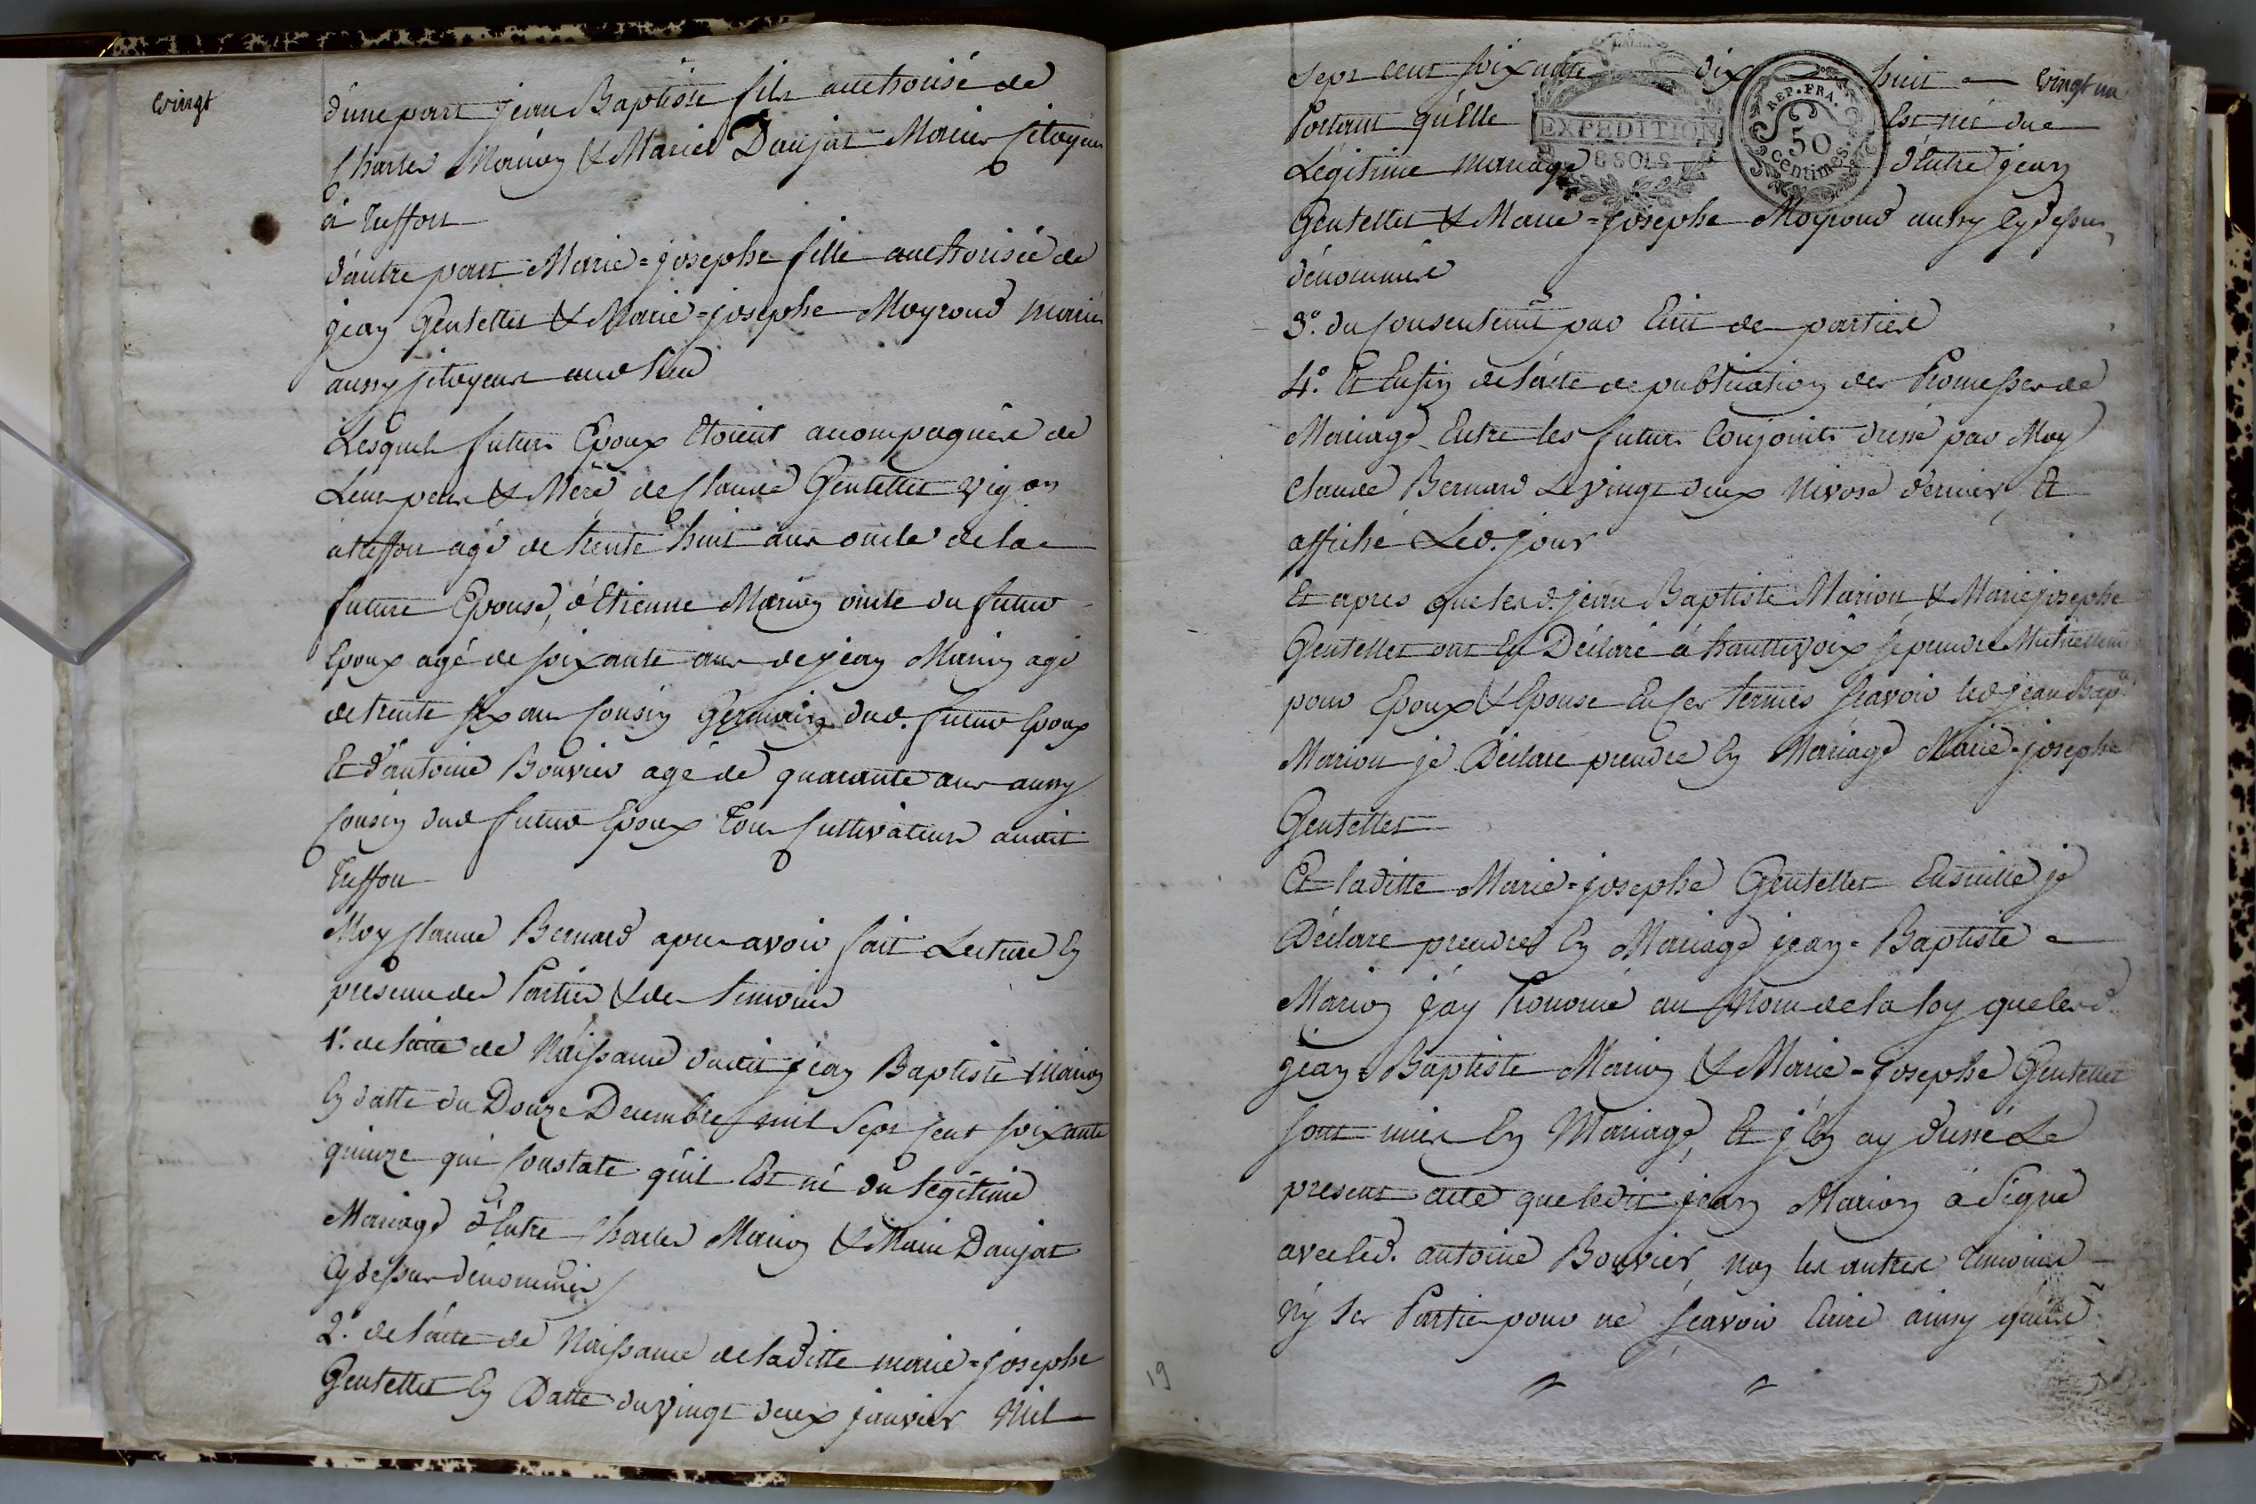 vingt
d'une part jean Baptiste fils authorisé de
Charles Marion & Marie Daujat Mariés Citoyens
à Treffort
d'autre part Marie=josephe fille authorisée de
jean Gentellet & Marie=josephe Moyroud mariés
aussy Citoyens aud. lieu
Lesquels futurs Epoux Etoient acompagnés de
Leurs pere & Mere de Claude Gentellet vig.on
à treffort agé de trente huit ans oncle de la
future Epouse, d'Etienne Marion oncle du futur
Epoux agé de soixante ans de jean Marion agé
de trente six ans Cousin Germain dud. futur Epoux
Et d'antoine Bouvier agé de quarante ans aussy
Cousin dud futur Epoux tous Cultivateurs audit
treffort
Moy Claude Bernard apres avoir fait Lecture En
presence des Parties & des temoins
1.° de l'acte de Naissance dudit jean Baptiste Marion
En datte du Douze Decembre mil Sept Cent soixante
quinze qui Constate qu'il Est né du légitime
Mariage d'Entre Charles Marion & Marie Daujat
Cy dessus dénommés
2.° de l'acte de Naissance de laditte marie=josephe
Gentellet En Datte du vingt deux janvier Mil
Sept cent soixante dix huit vingt un
Portant qu'Elle Est née du
Légitime mariage d'Entre jean
Gentellet & Marie=josephe Moyroud aussy Cy dessus
dénommés
EXPEDITION
8 SOLS
REP. FRA.
50
centimes.
3.° du Consentem.t par Ecrit des parties
4.° Et Enfin de l'acte de publication des Promesses de
Mariage Entre les futurs Conjoints dressé par Moy
Claude Bernard Le vingt deux Nivose dernier, Et
affiché Led. jour
Et apres que lesd. jean Baptiste Marion & Marie josephe
Gentellet ont Eu Déclaré à hautte voix se prendre Mutuellemt
pour Epoux & Epouse En Ces termes sçavoir led jean Bapte
Marion je Déclare prendre En Mariage Marie-josephe
Gentellet
Et laditte Marie=josephe Gentellet Ensuitte je
Déclare prendre En Mariage jean=Baptiste
Marion j'ay Prononcé au Nom de la loy que lesd.
jean=Baptiste Marion & Marie-josephe Gentellet
sont unis En Mariage, Et j'En ay dressé Le
present acte que ledit jean Marion a Signé
avec led. antoine Bouvier, non les autres temoins
n'y les Parties pour ne sçavoir Ecrire ainsy
19